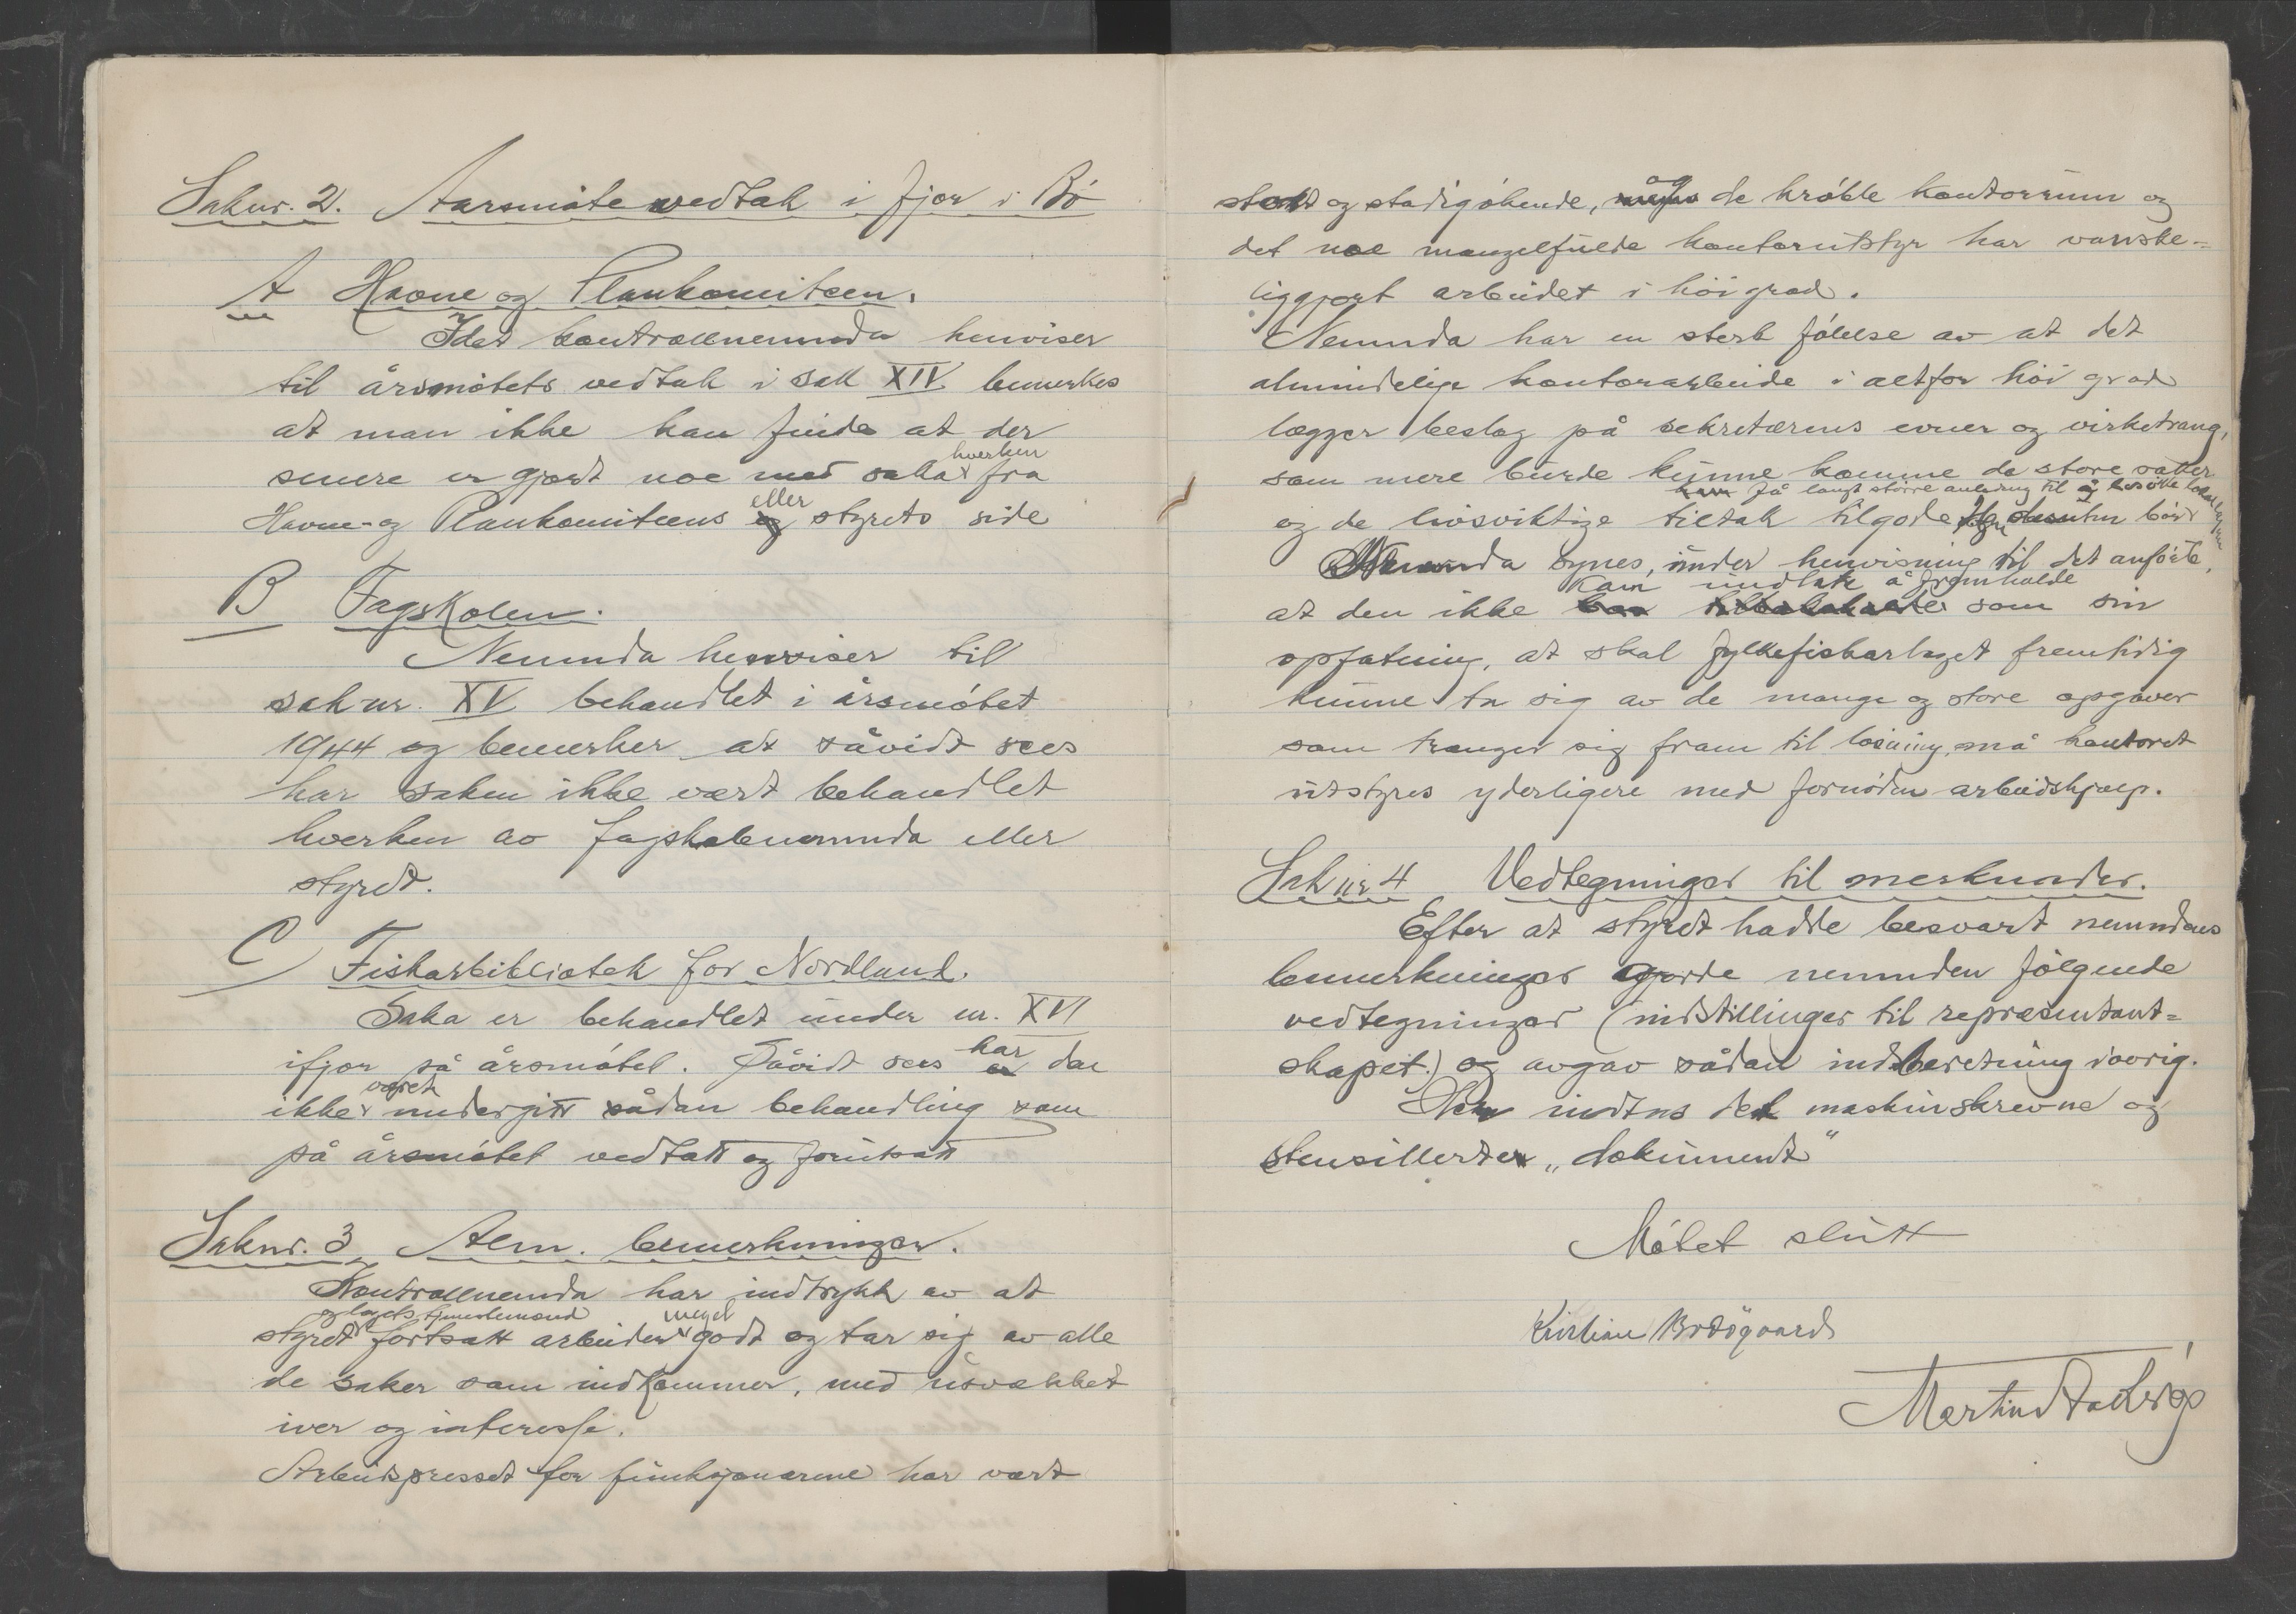 Saknr. 2. Aarsmøtevedtak i fjor i Bø
A Havne og Plankomiteen.
Idet kontrollnemnda henviser
til årsmøtets vedtak i sak XIV bemerkes
at man ikke kan finde at der
hverken
senere er gjort noe med saka fra
eller
Havne- og Plankomiteens og styrets side
B Fagskolen.
Nemnda henviser til
sak nr. XV behandlet i årsmøtet
1944 og bemerker at såvidt sees
har saken ikke vært behandlet
hverken av fagskolenemnda eller
styret.
C Fiskarbibliotek for Nordland.
Saka er behandlet under nr. XVI
har
ifjor på årsmøtet. Såvidt sees er den
været
ikke undergitt sådan behandling som
på årsmøtet vedtatt og forutsatt
Saknr. 3, Alm. bemerkninger.
Kontrollnemda har indtrykk av at
og lagets tjenestemænd meget
styret fortsatt arbeider godt og tar sig av alle
de saker som indkommer, med usvækket
iver og interesse.
Arbeidspresset for funksjonærene har vært
stort og stadigøkende, og de krøble kontorrum og
det noe mangelfulde kontorutstyr har vanske-
liggjort arbeidet i høi grad.
Nemnda har en sterk følelse av at det
almindelige kontorarbeide i altfor høi grad
lægger beslag på sekretærens evner og virketrang,
som mere burde kunne komme de store saker
få langt større anledning til å besøke lokallagene
og de livsviktige tiltak tilgode og desuten bør
Nemnda synes, under henvisning til det anførte,
kan undlate å fremholde
at den ikke som sin
opfatning, at skal fylkefiskarlaget fremtidig
kunne ta sig av de mange og store opgaver
som trænger sig fram til løsning, må kontoret
utstyres yderligere med fornøden arbeidshjælp.
Sak nr 4 Vedtegninger til merknader.
Efter at styret hadde besvart nemndens
bemerkninger gjorde nemnden følgende
vedtegninger (indstillinger til representant-
skapet.) og avgav sådan indberetning iøvrig.
Her indtas det maskinskrevne og
stensillerte „dokument"
Møtet slutt
Kristian Brødsgaard
Martin